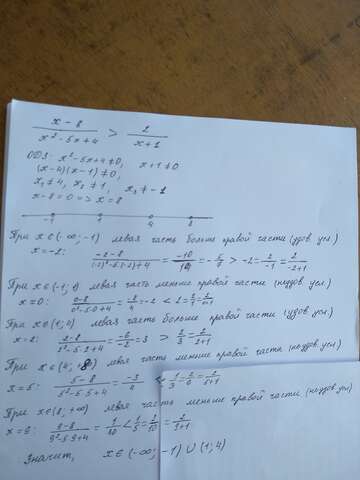 x-8 / x²-5x+4 > 2 / x+1
ОДЗ: x²-5x+4≠0, x+1≠0
(x-4)(x-1)≠0,
x₁≠4, x₂≠1, x₃≠-1
x-8=0 => x=8
-1 1 4 8
При x∈(-∞;-1) левая часть больше правой части (удов. усл.)
x=-2: -2-8 / (-2)²-5·(-2)+4 = -10/18 = -5/9 > -2 = 2/-1 = 2/-2+1
При x∈(-1;1) левая часть меньше правой части (неудов. усл.)
x=0: 0-8 / 0²-5·0+4 = -8/4 = -2 < 2 = 2/1 = 2/0+1
При x∈(1;4) левая часть больше правой части (удов. усл.)
x=2: 2-8 / 2²-5·2+4 = -6/-2 = 3 > 2/3 = 2/2+1
При x∈(4;8) левая часть меньше правой части (неудов. усл.)
x=5: 5-8 / 5²-5·5+4 = -3/4 < 1/3 = 2/6 = 2/5+1
При x∈(8;+∞) левая часть меньше правой части (неудов. усл.)
x=9: 9-8 / 9²-5·9+4 = 1/40 < 1/5 = 2/10 = 2/9+1
Значит, x∈(-∞;-1)∪(1;4)